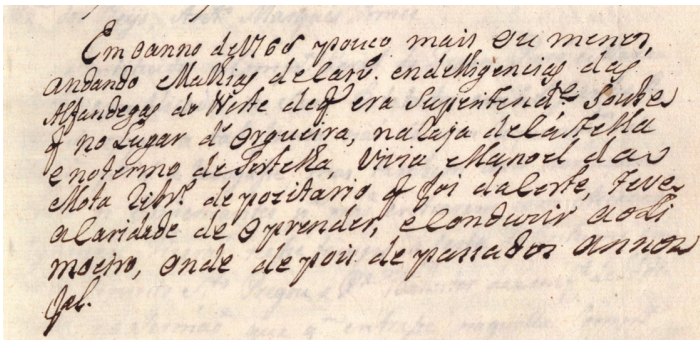 Em o anno de 1760 pouco mais ou menos,
andando Mathias de Carv. en delligencias das
Alfandegas do Norte de q̃ era Superintend.te, Soube
q̃ no Lugar d' Orgueira, na Caza de
e no termo de Vivia Manoel da
Mota Ribr.o depozitario q̃ foi da Corte, teve
a Caridade de o prender, e Conduzir ao Li
moeiro, onde depois de passados annos